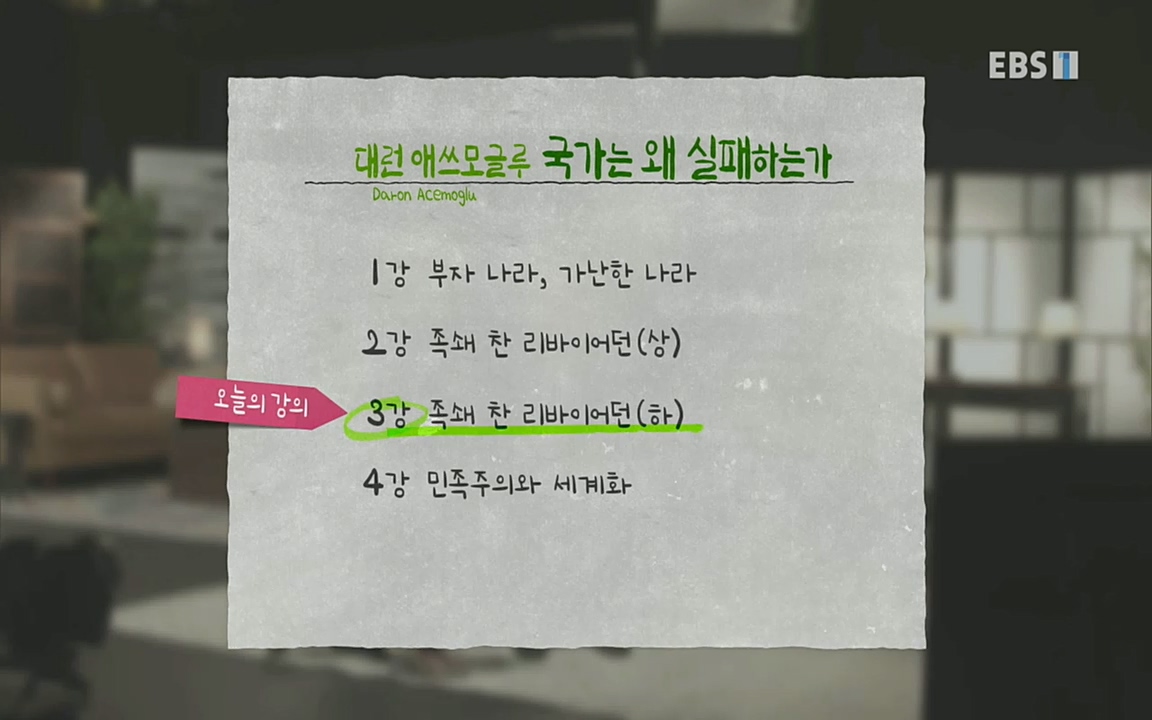 EBS1
대런 애쓰모글루 국가는 왜 실패하는가
Daron Acemoglu
1강 부자 나라, 가난한 나라
2강 족쇄 찬 리바이어던(상)
오늘의 강의
3강 족쇄 찬 리바이어던(하)
4강 민족주의와 세계화